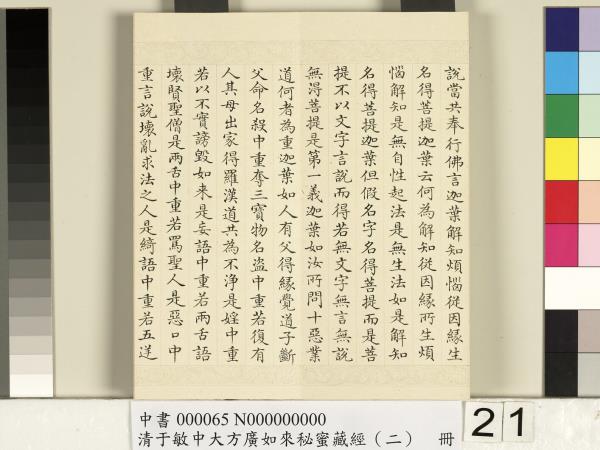 說當共奉行佛言迦葉解知煩惱從因緣生
名得菩提迦葉云何為解知從因緣所生煩
惱解知是無自性起法是無生法如是解知
名得菩提迦葉但假名字名得菩提而是菩
提不以文字言說而得若無文字無言無說
無得菩提是第一義迦葉如汝所問十惡業
道何者為重迦葉如人有父得緣覺道子斷
父命名殺中重奪三寶物名盜中重若復有
人其母出家得羅漢道共為不淨是婬中重
若以不實謗毀如來是妄語中重若兩舌語
壞賢聖僧是兩舌中重若罵聖人是惡口中
重言說壞亂求法之人是綺語中重若五逆
中書 000065 N000000000
清于敏中大方廣如來秘蜜藏經（二） 冊
21